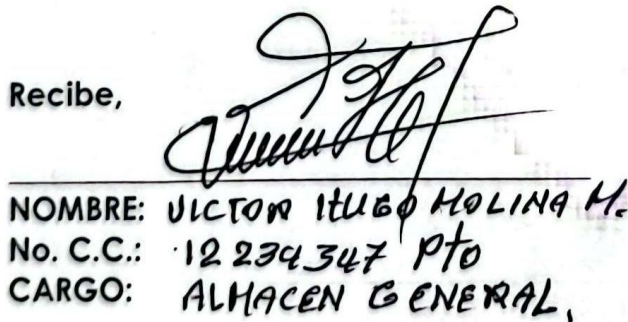 Recibe,
NOMBRE: VICTOR HUGO MOLINA M.
No. C.C.: 12 234 347 Pto
CARGO: ALMACEN GENERAL,